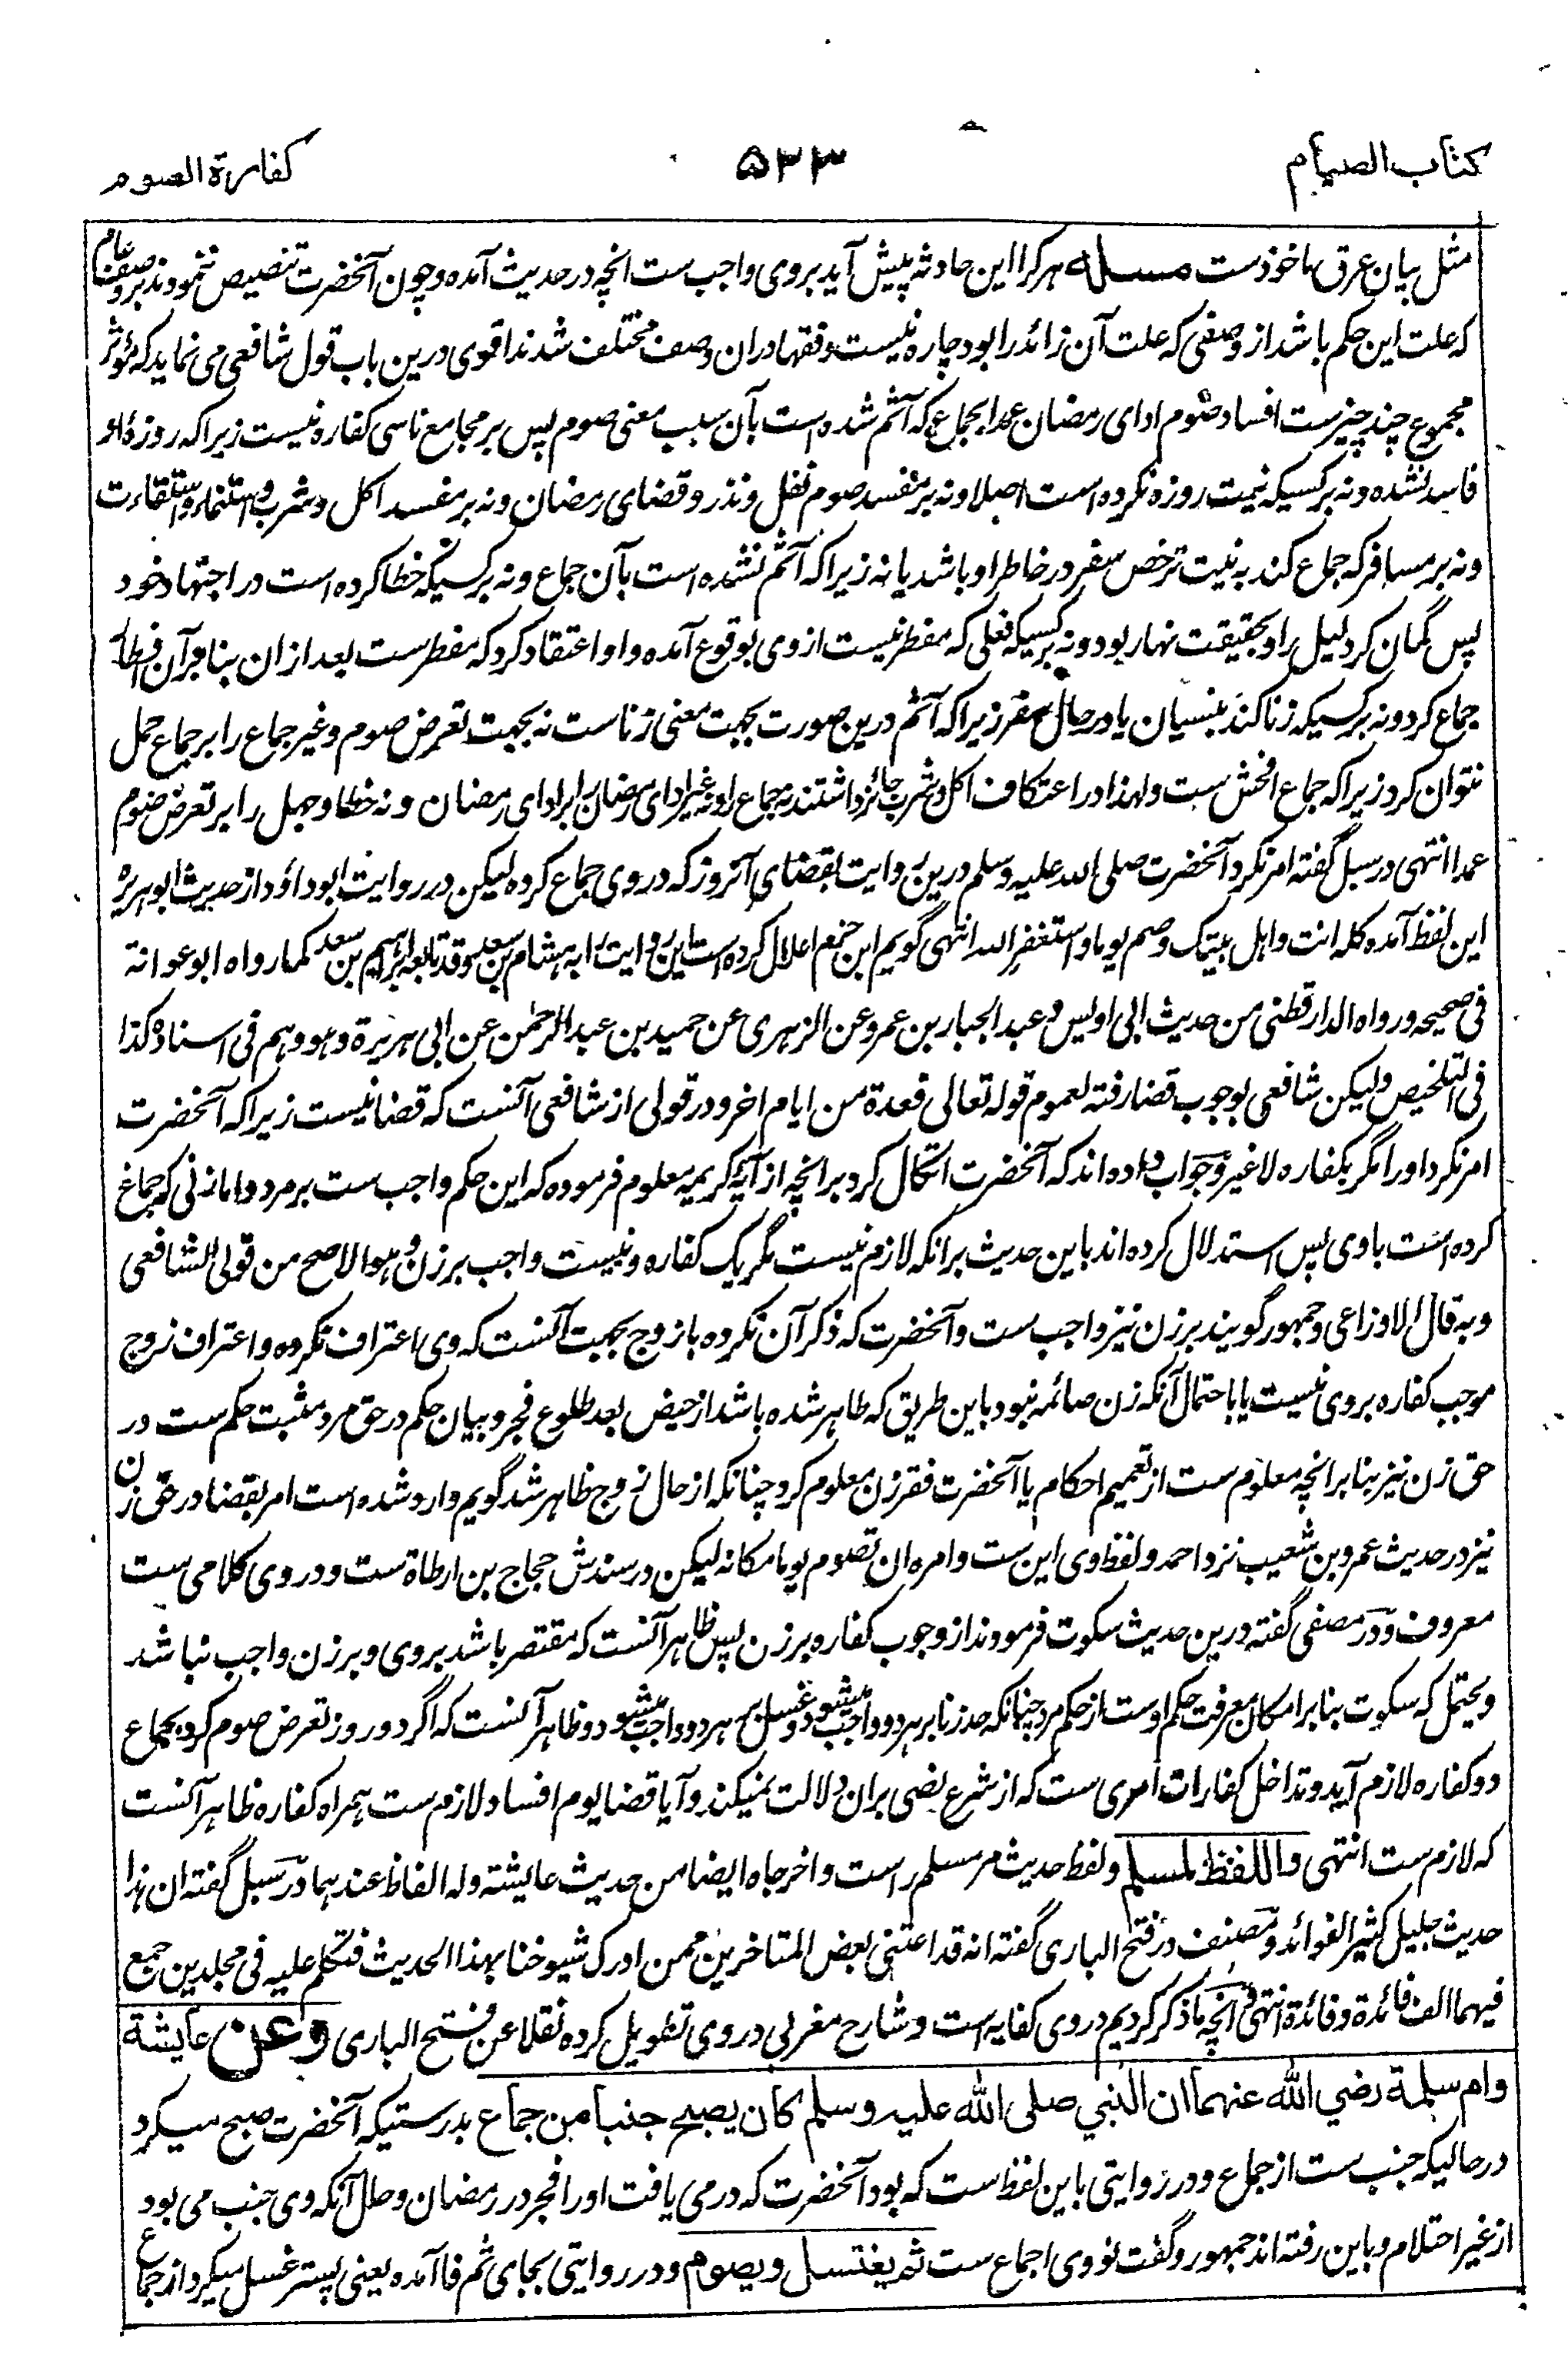 کتاب الصیام
۵۳۳
کفارة الصوم
مثل بیان عرق ماخوذست مسئله هر کرا این حادثه پیش آید بروی واجب ست انچه در حدیث آمده و چون آنحضرت تنصیص ننمودند بر وصف عام
که علت این حکم باشد از وصفی که علت آن زائد را بود چاره نیست و فقها دران وصف مختلف شدند اقوی درین باب قول شافعی می نماید که مؤثر
مجموع چند چیزست افساد صوم ادای رمضان عمدا بجماع که آثم شده است بآن سبب معنی صوم پس بر مجامع ناسی کفاره نیست زیرا که روزهٔ او
فاسد نشده و نه بر کسیکه نیت روزه نکرده است اصلا و نه بر مفسد صوم نفل و نذر و قضای رمضان و نه بر مفسد اکل و شرب و استمناء و استقاءت
و نه بر مسافر که جماع کند به نیت ترخص سفر در خاطر او باشد یا نه زیرا که آثم نشده است بآن جماع و نه بر کسیکه خطا کرده است در اجتهاد خود
پس گمان کرد لیل را و بحقیقت نهار بود و نه بر کسیکه فعلی که مفطر نیست از وی بوقوع آمده و او اعتقاد کرد که مفطرست بعد ازان بنا بر آن
جماع کرد و نه بر کسیکه زنا کند بنسیان یا در حال سفر زیرا که آثم درین صورت بجهت معنی زناست نه بجهت تعرض صوم و غیر جماع را بر جماع حمل
نتوان کرد زیرا که جماع افحش ست ولهذا در اعتکاف اکل و شرب جائز داشتند نه جماع را و نه غیر ادای رمضان را بر ادای رمضان و نه خطا و جهل را بر تعرض صوم
عمدا انتهی در سبل گفته امر نکرد آنحضرت صلی الله علیه وسلم درین روایت بقضای آنروز که در وی جماع کرده لیکن در روایت ابو داؤد از حدیث ابو هریره
این لفظ آمده کله انت و اهل بیتک و صم یوما و استغفر الله انتهی گویم ابن حزم اعلال کرده است این روایت را به هشام بن سعد و قد تابعه ابراهیم بن سعد کما رواه ابو عوانة
فی صحیحه و رواه الدارقطنی من حدیث ابی اویس و عبد الجبار بن عمر و عن الزهری عن حمید بن عبد الرحمٰن عن ابی هریرة و هو وهم فی اسناده کذا
فی التلخیص و لیکن شافعی بوجوب قضا رفته لعموم قوله تعالی فعدة من ایام اخر و در قولی از شافعی آنست که قضا نیست زیرا که آنحضرت
امر نکرد او را مگر بکفاره لا غیر و جواب داده اند که آنحضرت اتکال کرد بر انچه از آیهٔ کریمه معلوم فرموده که این حکم واجب ست بر مرد و اما زنی که جماع
کرده است باوی پس استدلال کرده اند باین حدیث بر انکه لازم نیست مگر یک کفاره و نیست واجب بر زن و هو الاصح من قولی الشافعی
و به قال الاوزاعی و جمهور گویند بر زن نیز واجب ست و آنحضرت که ذکر آن نکرده با زوج بجهت آنست که وی اعتراف نکرده و اعتراف زوج
موجب کفاره بروی نیست یا باحتمال آنکه زن صائمه نبود باین طریق که طاهر شده باشد از حیض بعد طلوع فجر و بیان حکم در حق مرد مثبت حکم ست در
حق زن نیز بنا بر انچه معلوم ست از تعمیم احکام یا آنحضرت فقر زن معلوم کرد چنانکه از حال زوج ظاهر شد گویم وارد شده است امر بقضا در حق زن
نیز در حدیث عمرو بن شعیب نزد احمد و لفظ وی این ست و امره ان تصوم یوما مکانه لیکن در سندش حجاج بن ارطاة ست و در وی کلامی ست
معروف و در مصفی گفته درین حدیث سکوت فرمودند از وجوب کفاره بر زن پس ظاهر آنست که مقتصر باشد بروی و بر زن واجب نباشد
و یحتمل که سکوت بنا بر امکان معرفت حکم اوست از حکم مرد چنانکه حد زنا بر هر دو واجب میشود و غسل بر هر دو واجب میشود و ظاهر آنست که اگر دو روز تعرض صوم کرد بجماع
دو کفاره لازم آید و تداخل کفارات امری ست که از شرع نصی بران دلالت نمیکند و آیا قضا یوم افساد لازم ست همراه کفاره ظاهر آنست
که لازم ست انتهی واللفظ لمسلم و لفظ حدیث مر مسلم راست و اخرجاه ایضا من حدیث عایشة وله الفاظ عندهما در سبل گفته ان هذا
حدیث جلیل کثیر الفوائد و مصنف در فتح الباری گفته انه قد اعتنی بعض المتاخرین ممن ادرک شیوخنا بهذا الحدیث فتکلم علیه فی مجلدین جمع
فیهما الف فائدة و فائدة انتهی و انچه ما ذکر کردیم در وی کفایه است و شارح مغربی در وی تطویل کرده نقلا عن فتح الباری وعن عایشة
وام سلمة رضي الله عنهما ان النبي صلى الله عليه وسلم كان يصبح جنبا من جماع بدرستیکه آنحضرت صبح میکرد
در حالیکه جنب ست از جماع و در روایتی باین لفظ ست که بود آنحضرت که در می یافت او را فجر در رمضان و حال آنکه وی جنب می بود
از غیر احتلام و باین رفته اند جمهور و گفت نووی اجماع ست ثم يغتسل ويصوم و در روایتی بجای ثم فا آمده یعنی پستر غسل میکرد از جماع